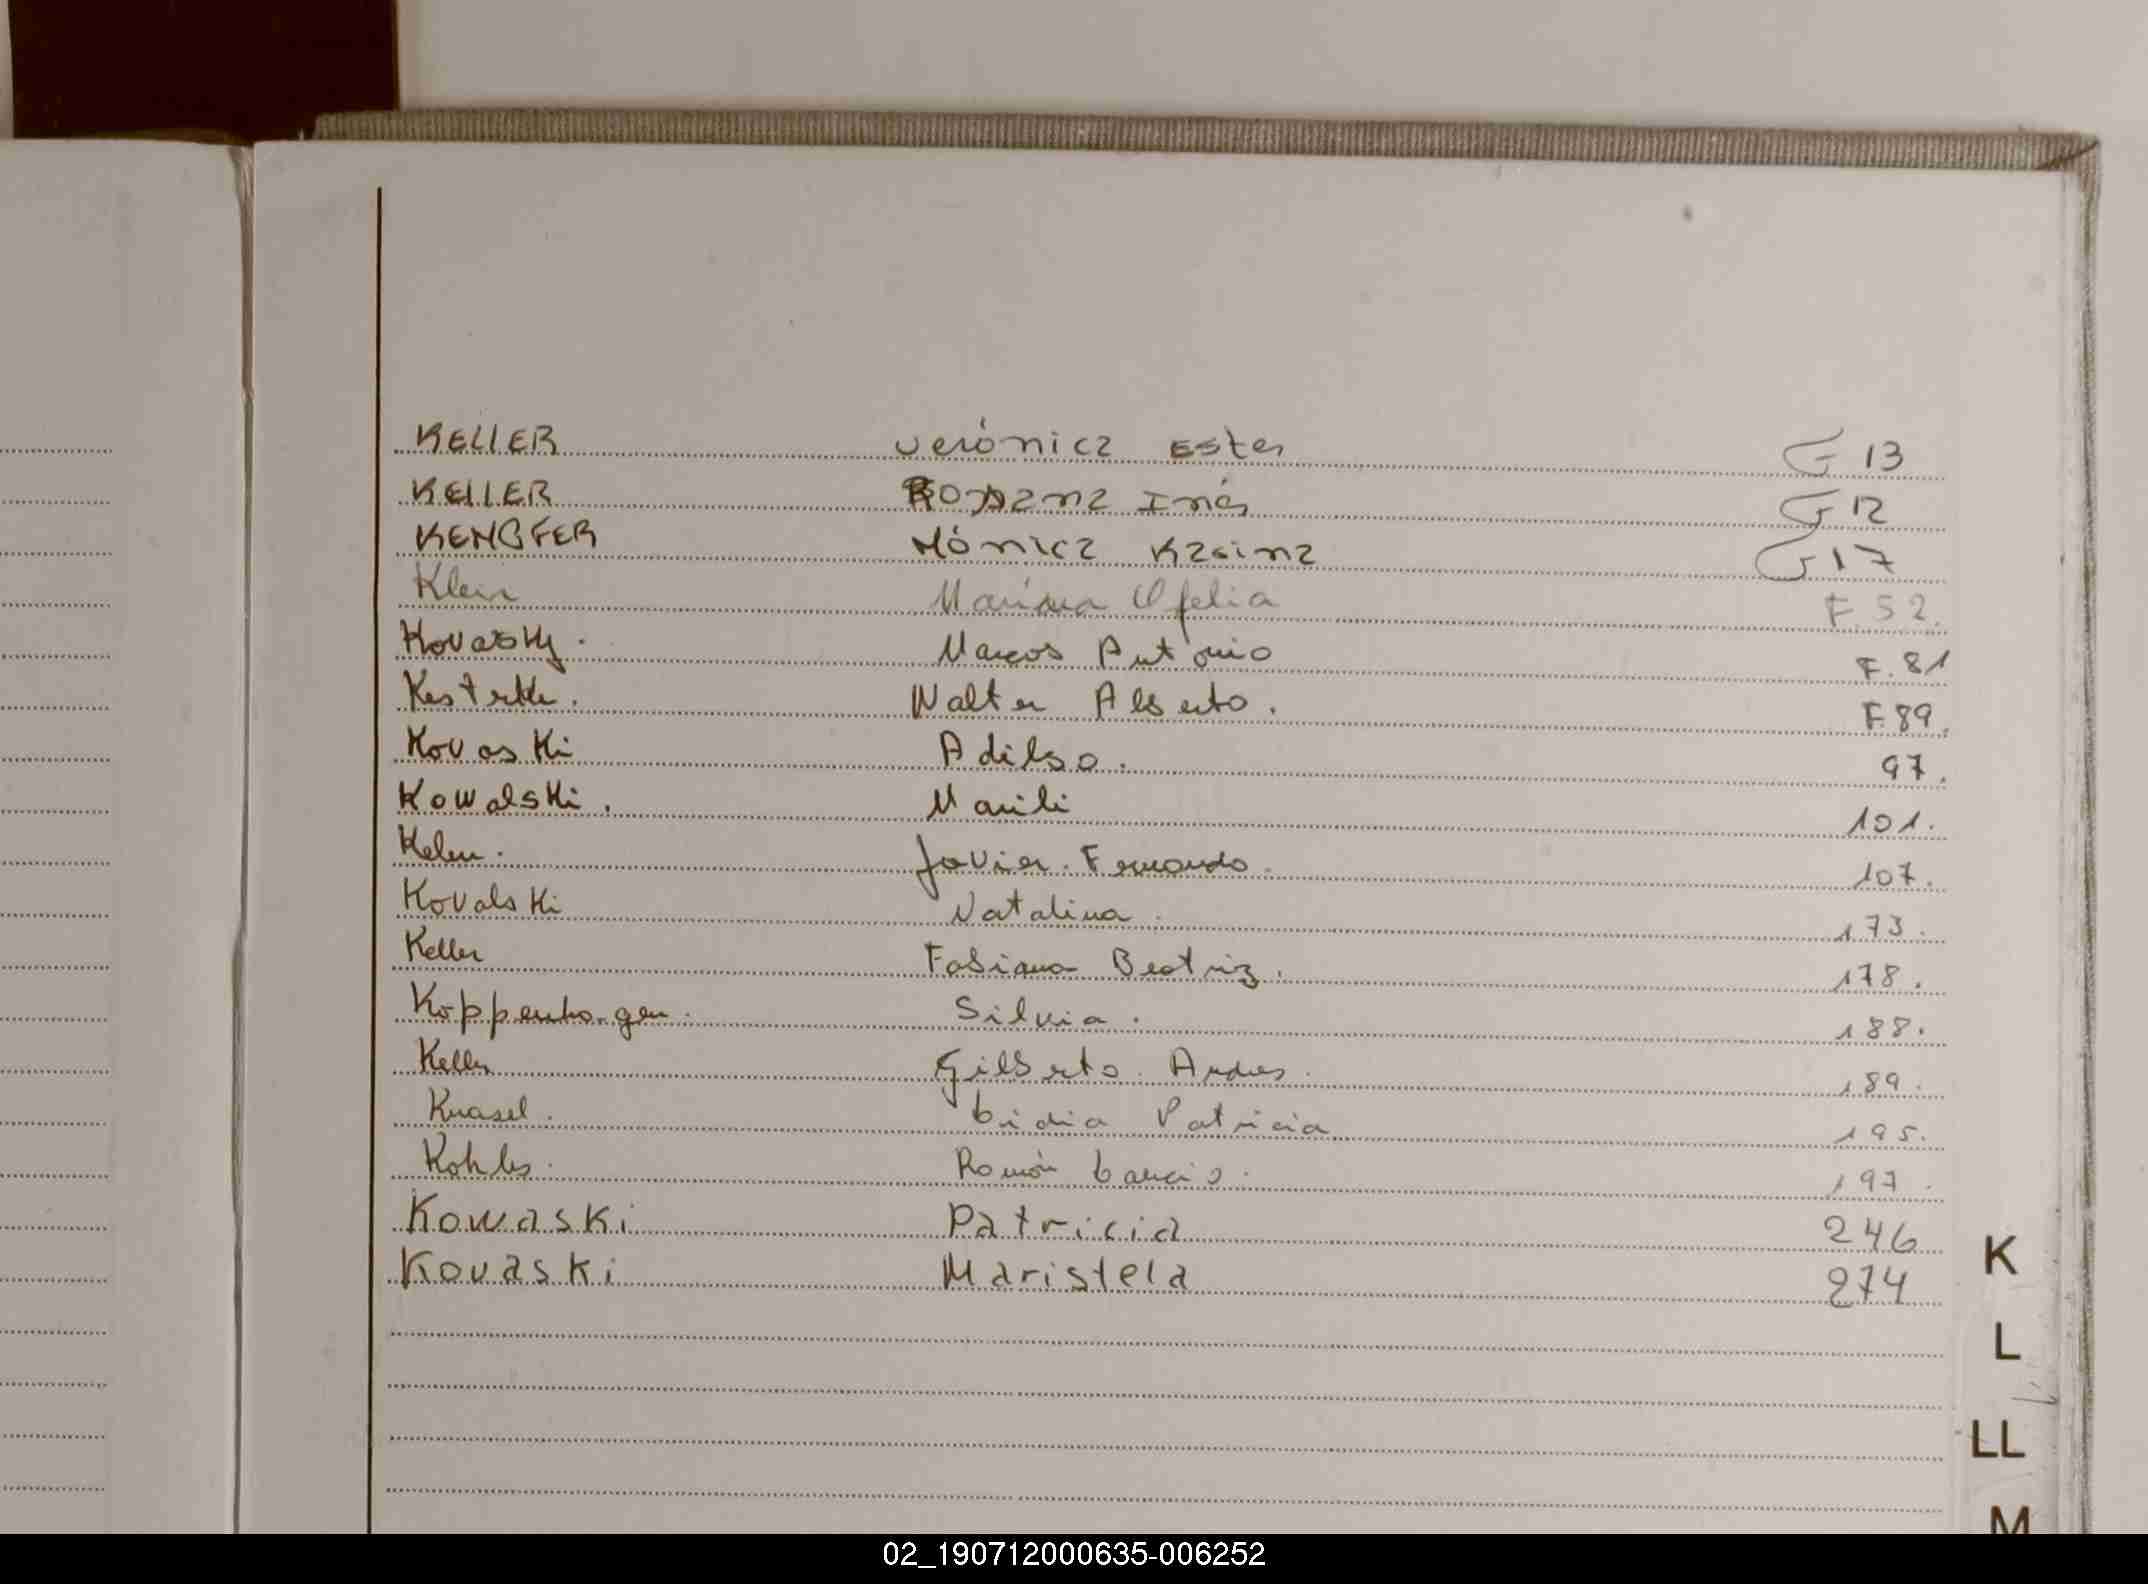 KELLER Verónica Ester F 13
KELLER ROSANA Inés F 12
KENGFER Mónica Karina F 17
Klein Mariana Ofelia F. 52.
Kovasky. Marcos Antonio F. 81
Walter Alberto. F. 89.
Kovaski Adilso. 97.
Kowalski. Marili 101.
Javier. Fernando. 107.
Kovalski Natalina. 173.
Keller Fabiana Beatriz. 178.
Koppenhagen. Silvia. 188.
Keller Gilberto Andres. 189.
Knasel. Lidia Patricia 195.
Ramón 197.
Kowaski Patricia 246
Kovaski Maristela 274
K
L
LL
M
02_190712000635-006252